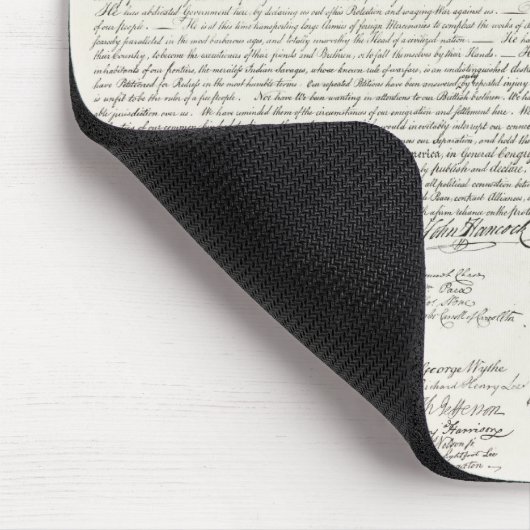 He has abdicated Government here, by declaring us out of his Protection and waging War against us.
of our people. He is at this time transporting large Armies of foreign Mercenaries to compleat the works of
paralleled in the most barbarous ages, and totally unworthy the Head of a civilized nation.
their Country, to become the executioners of their friends and Brethren, or to fall themselves by their Hands.
inhabitants of our frontiers, the merciless Indian Savages, whose known rule of warfare, is an undistinguished
have Petitioned for Redress in the most humble terms: Our repeated Petitions have been answered only by repeated injury
is unfit to be the ruler of a free people. Nor have We been wanting in attentions to our Brittish brethren. We
able jurisdiction over us. We have reminded them of the circumstances of our emigration and settlement here. We
of our common would inevitably interrupt our
our Separation, and hold
America, in General
publish and declare,
all political connection
Peace, contract Alliances,
a firm reliance on the
John Hancock
Paca
Stone
Carroll of Carrollton
George Wythe
Richard Henry Lee
Th Jefferson
Harrison
Nelson jr
Lightfoot Lee